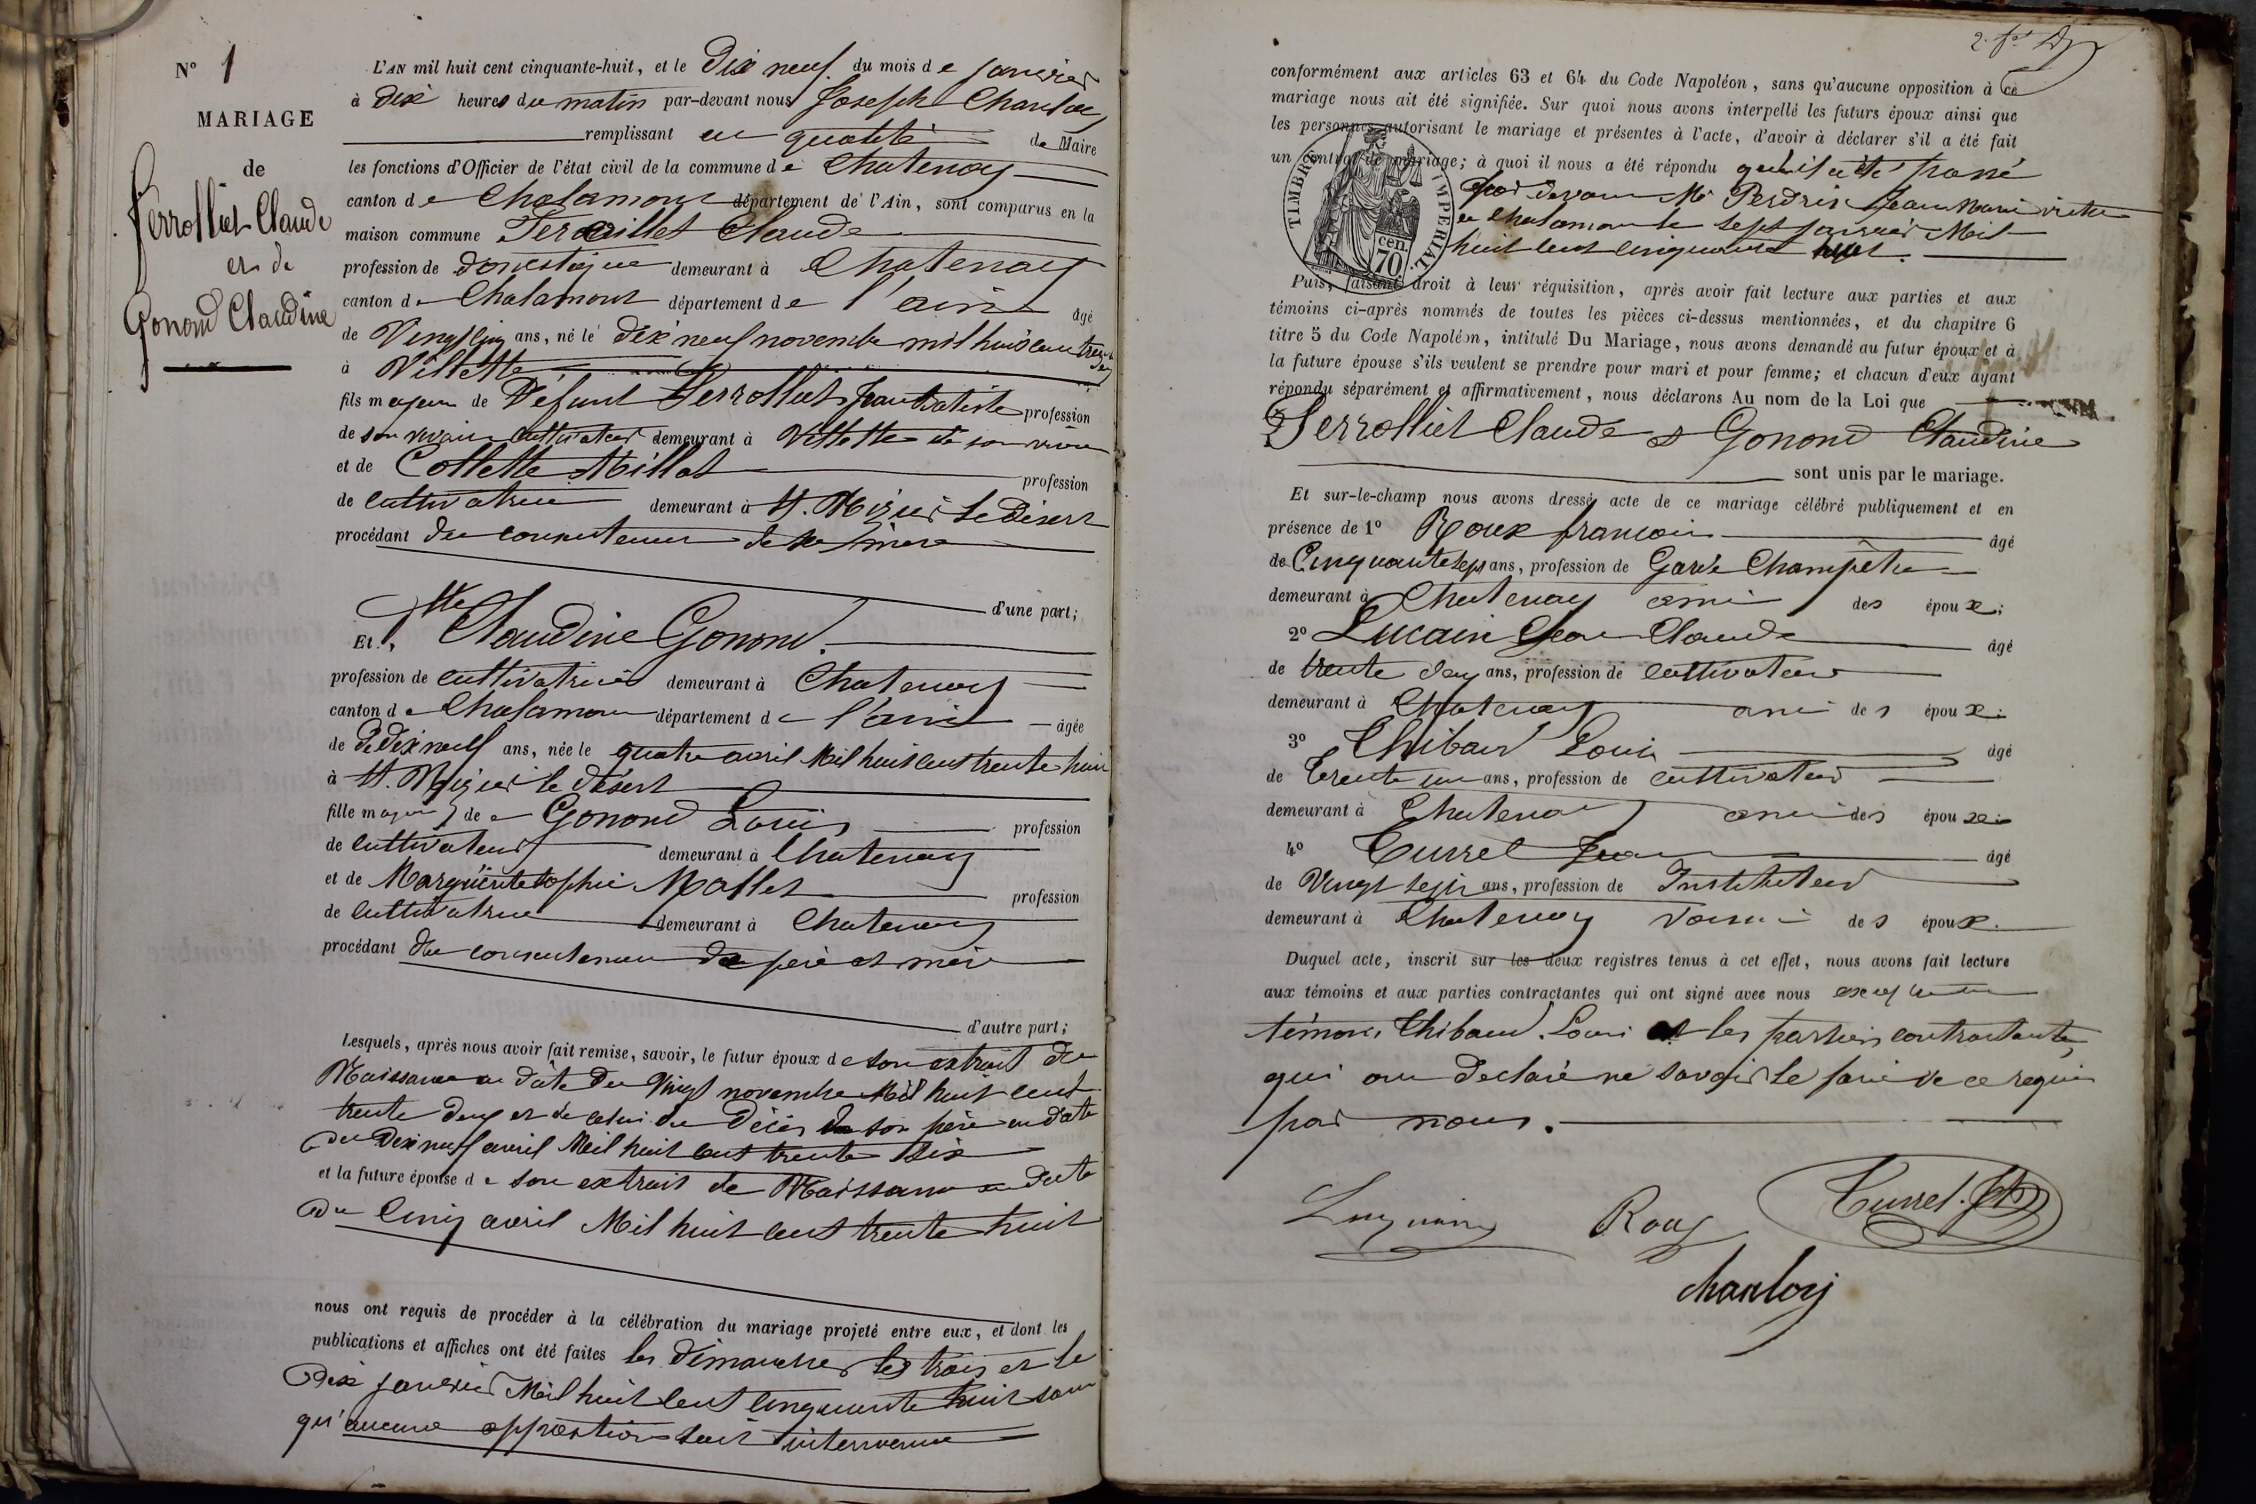 N° 1
MARIAGE
de
Ferrolliet Claude
et de
Gonond Claudine
L'AN mil huit cent cinquante-huit, et le Dix neuf du mois de janvier
à dix heures du matin par-devant nous Joseph
remplissant en qualité de Maire
les fonctions d'Officier de l'état civil de la commune de Chatenay
canton de Chalamont département de l'Ain, sont comparus en la
maison commune Claude
profession de domestique demeurant à Chatenay
canton de Chalamont département de l'ain âgé
de Vingt cinq ans, né le dix neuf novembre mil huit cent trente deux
à Villette
fils majeur de Défunt Ferrolliet Jean Batiste profession
de son vivant cultivateur demeurant à Villette de son vivan
et de Collette Millet profession
de cultivatrice demeurant à St. Nizier le Désert
procédant du consentement de sa mère
d'une part;
Et Dlle Claudine Gonond.
profession de cultivatrice demeurant à Chatenay
canton de Chalamon département de l'ain âgée
de Dix neuf ans, née le quatre avril Mil huit cent trente huit
à St. Nizier le désert
fille majeure de Gonond Louis profession
de cultivateur demeurant à Chatenay
et de Marguerite Sophie Mallet profession
de cultivatrice demeurant à Chatenay
procédant du consentement de père et mère
d'autre part;
Lesquels, après nous avoir fait remise, savoir, le futur époux de son extrait de
Naissance en date du Vingt novembre Mil huit cent
trente deux et de celui du Décès de son père en date
du Dix neuf avril Mil huit cent trente six
et la future épouse de son extrait de Naissance en date
du Cinq avril Mil huit cent trente huit
nous ont requis de procéder à la célébration du mariage projeté entre eux, et dont les
publications et affiches ont été faites les dimanches les trois et le
Dix janvier Mil huit cent cinquante huit sans
qu'aucune opposition soit intervenue
conformément aux articles 63 et 64 du Code Napoléon, sans qu'aucune opposition à ce
mariage nous ait été signifiée. Sur quoi nous avons interpellé les futurs époux ainsi que
les personnes autorisant le mariage et présentes à l'acte, d'avoir à déclarer s'il a été fait
un contrat de mariage; à quoi il nous a été répondu qu'il a été passé
par devant Me Perdrix Jean Marie
à Chalamon le sept janvier Mil
huit cent cinquante huit.
TIMBRE IMPERIAL
70 cen.
Puis, faisant droit à leur réquisition, après avoir fait lecture aux parties et aux
témoins ci-après nommés de toutes les pièces ci-dessus mentionnées, et du chapitre 6
titre 5 du Code Napoléon, intitulé Du Mariage, nous avons demandé au futur époux et à
la future épouse s'ils veulent se prendre pour mari et pour femme; et chacun d'eux ayant
répondu séparément et affirmativement, nous déclarons Au nom de la Loi que
Ferrolliet Claude et Gonond Claudine
sont unis par le mariage.
Et sur-le-champ nous avons dressé acte de ce mariage célébré publiquement et en
présence de 1° Roux françois âgé
de Cinquante sept ans, profession de Garde Champêtre
demeurant à Chatenay ami des époux;
2° Jean Claude âgé
de trente deux ans, profession de cultivateur
demeurant à Chatenay ami des époux;
3° Thibaud Louis âgé
de trente un ans, profession de cultivateur
demeurant à Chatenay ami des époux;
4° Turrel Jean âgé
de Vingt sept ans, profession de Instituteur
demeurant à Chatenay voisin des époux.
Duquel acte, inscrit sur les deux registres tenus à cet effet, nous avons fait lecture
aux témoins et aux parties contractantes qui ont signé avec nous excepté
témoin Thibaud Louis et les parties contractantes
qui ont déclaré ne savoir le faire de ce requis
par nous.
Roux
Turrel